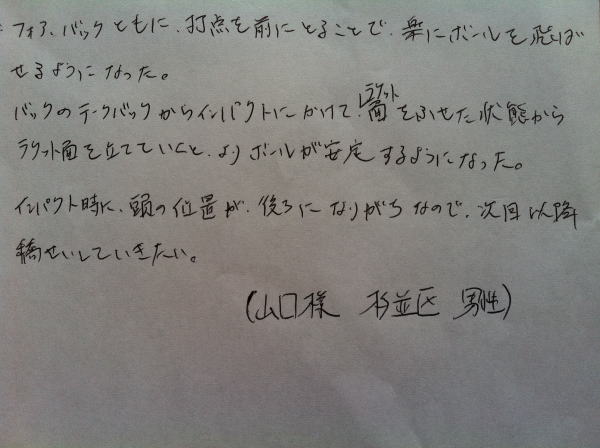 フォア、バックともに、打点を前にとることで、楽にボールを飛ば
せるようになった。
バックのテークバックからインパクトにかけて、ラケット面をふせた状態から
ラケット面を立てていくと、よりボールが安定するようになった。
インパクト時に、頭の位置が、後ろになりがちなので、次回以降
矯せいしていきたい。
(山口様 杉並区 男性)